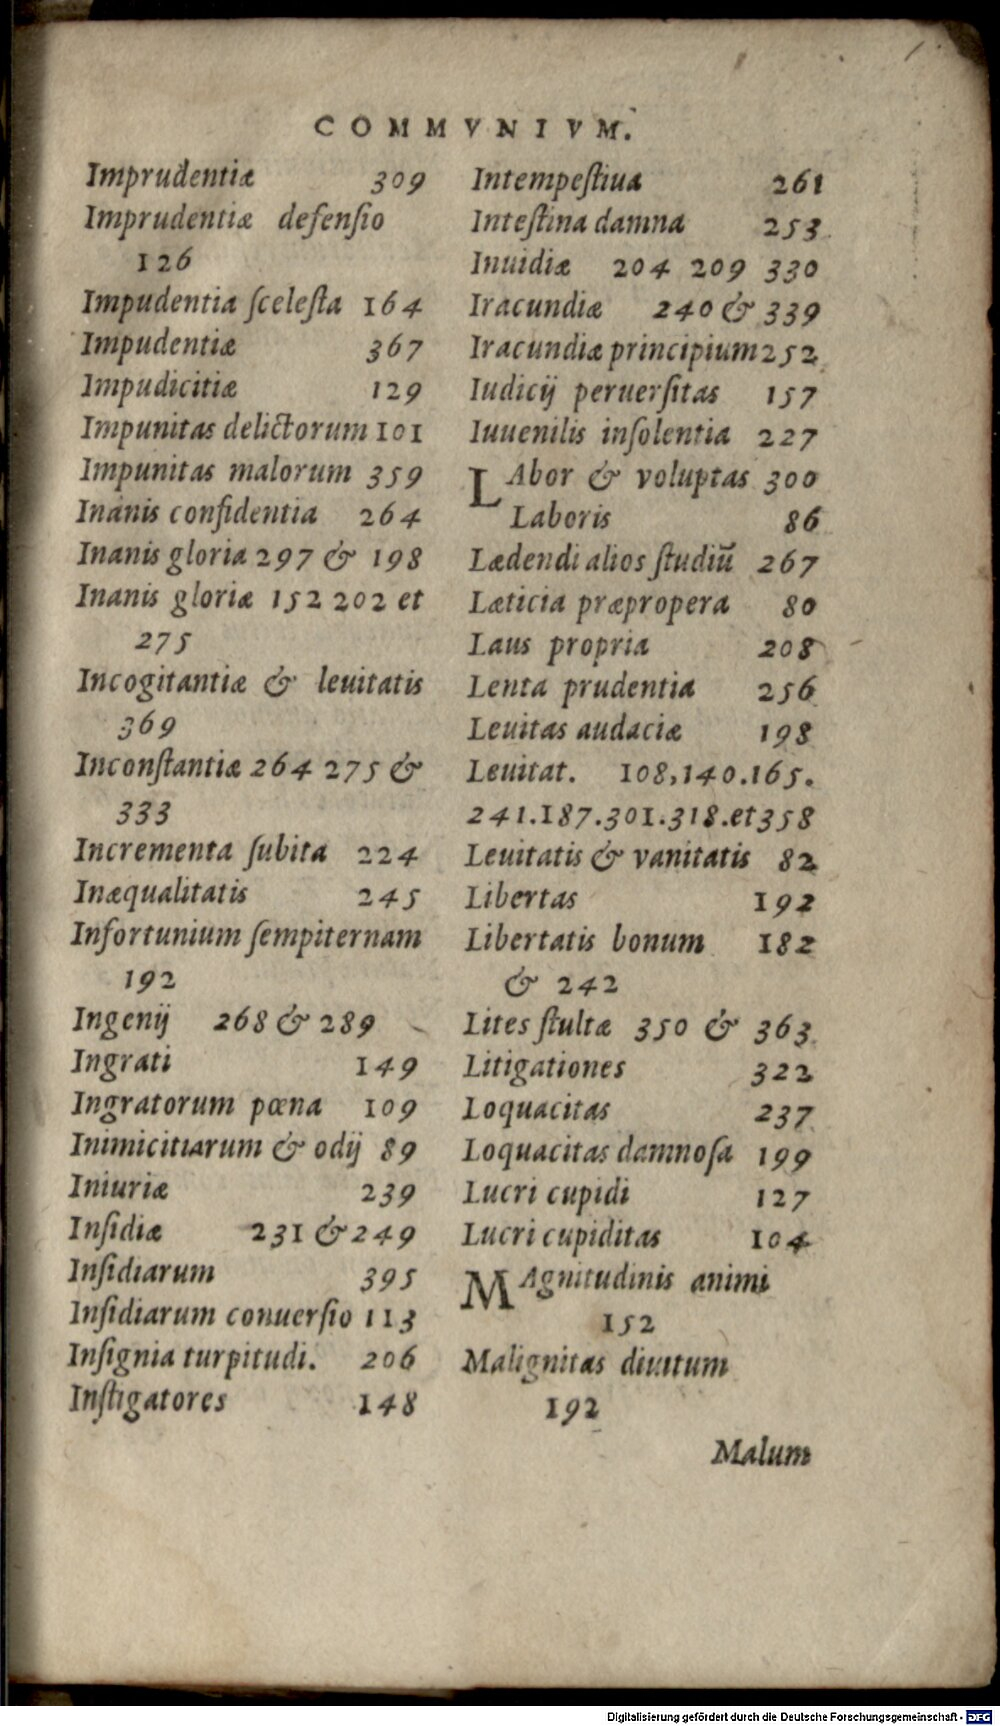 COMMVNIVM.
Imprudentiæ 309
Imprudentiæ defenſio
126
Impudentia ſceleſta 164
Impudentiæ 367
Impudicitiæ 129
Impunitas delictorum 101
Impunitas malorum 359
Inanis confidentia 264
Inanis gloria 297 & 198
Inanis gloriæ 152 202 et
275
Incogitantiæ & leuitatis
369
Inconſtantiæ 264 275 &
333
Incrementa ſubita 224
Inæqualitatis 245
Infortunium ſempiternam
192
Ingenij 268 & 289
Ingrati 149
Ingratorum pœna 109
Inimicitiarum & odij 89
Iniuriæ 239
Inſidiæ 231 & 249
Inſidiarum 395
Inſidiarum conuerſio 113
Inſignia turpitudi. 206
Inſtigatores 148
Intempeſtiua 261
Inteſtina damna 253
Inuidiæ 204 209 330
Iracundiæ 240 & 339
Iracundiæ principium 252
Iudicij peruerſitas 157
Iuuenilis inſolentia 227
LAbor & voluptas 300
Laboris 86
Lædendi alios ſtudiū 267
Læticia præpropera 80
Laus propria 208
Lenta prudentia 256
Leuitas audaciæ 198
Leuitat. 108,140.165.
241.187.301.318.et 358
Leuitatis & vanitatis 82
Libertas 192
Libertatis bonum 182
& 242
Lites ſtultæ 350 & 363
Litigationes 322
Loquacitas 237
Loquacitas damnoſa 199
Lucri cupidi 127
Lucri cupiditas 104
MAgnitudinis animi
152
Malignitas diuitum
192
Malum
Digitalisierung gefördert durch die Deutsche Forschungsgemeinschaft - DFG